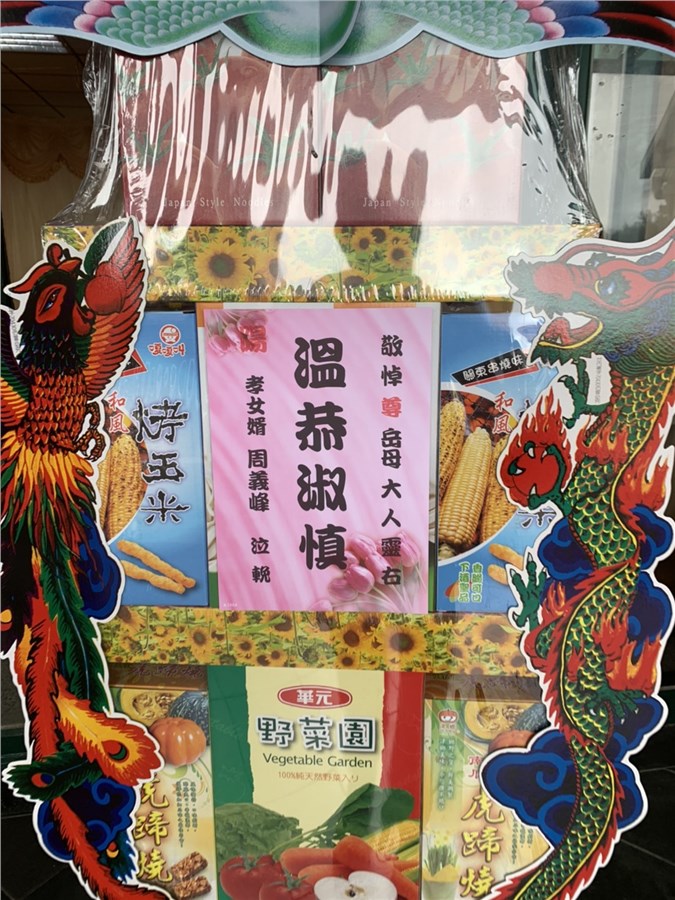 Japan Style Noodles
Japan Style
浪浪叫
和風
烤玉米
關東串燒味
米
敬悼 尊 岳母大人靈右
溫恭淑慎
孝女婿 周義峰 泣輓
華元
野菜園
Vegetable Garden
100%純天然野菜入り
虎蹄燒
虎蹄燒